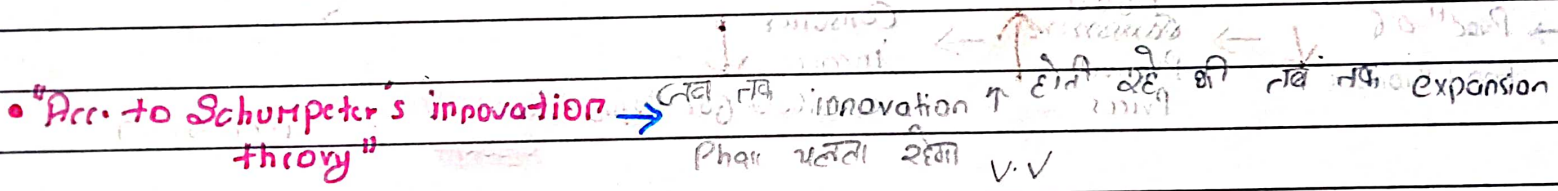 • "Acc. to Schumpeter's innovation → जब तक innovation ↑ होती रहे गी तब तक expansion
theory" Phase चलता रहेगा V.V